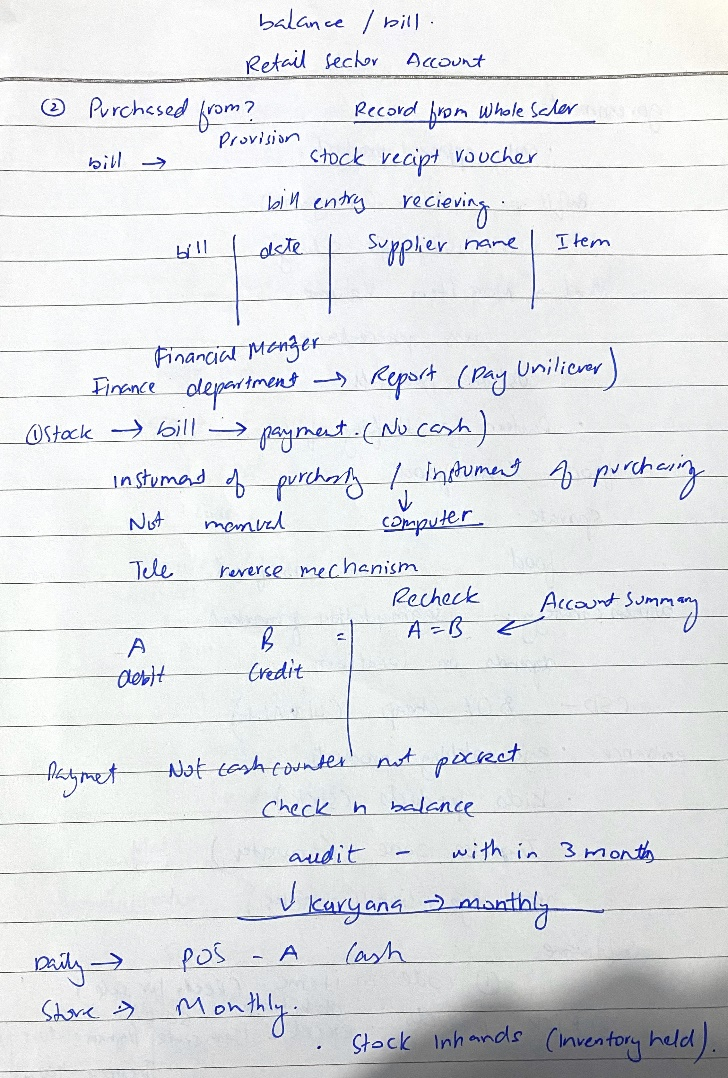 balance / bill.
Retail sector Account
② Purchased from? Record from Whole Saler
Provision
bill → stock recipt voucher
bill entry recieving.
bill | date | Supplier name | Item
Financial Manger
Finance department → Report (Pay Uniliever)
① Stock → bill → payment. (No cash)
instument of purchasing / instument of purchasing
↓
Not manual computer
Tele reverse mechanism
Recheck Account Summary
A B = A = B ←
debit Credit
Paymet Not cash counter not pocket
Check n balance
audit - with in 3 month
↓ Karyana → monthly
Daily → POS - A Cash
Store → Monthly.
. Stock Inhands (Inventory held).